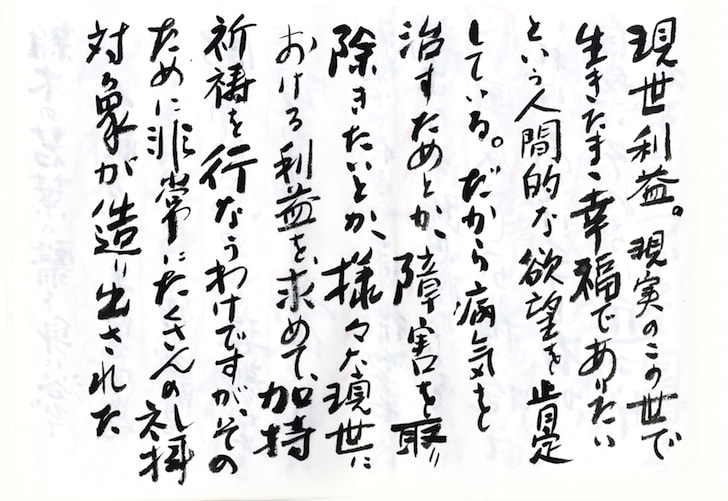 現世利益。現実のこの世で
生きたまま幸福でありたい
という人間的な欲望を肯定
している。だから病気を
治すためとか、障害を取り
除きたいとか、様々な現世に
おける利益を求めて、加持
祈祷を行なうわけですが、その
ために非常にたくさんの礼拝
対象が造り出された